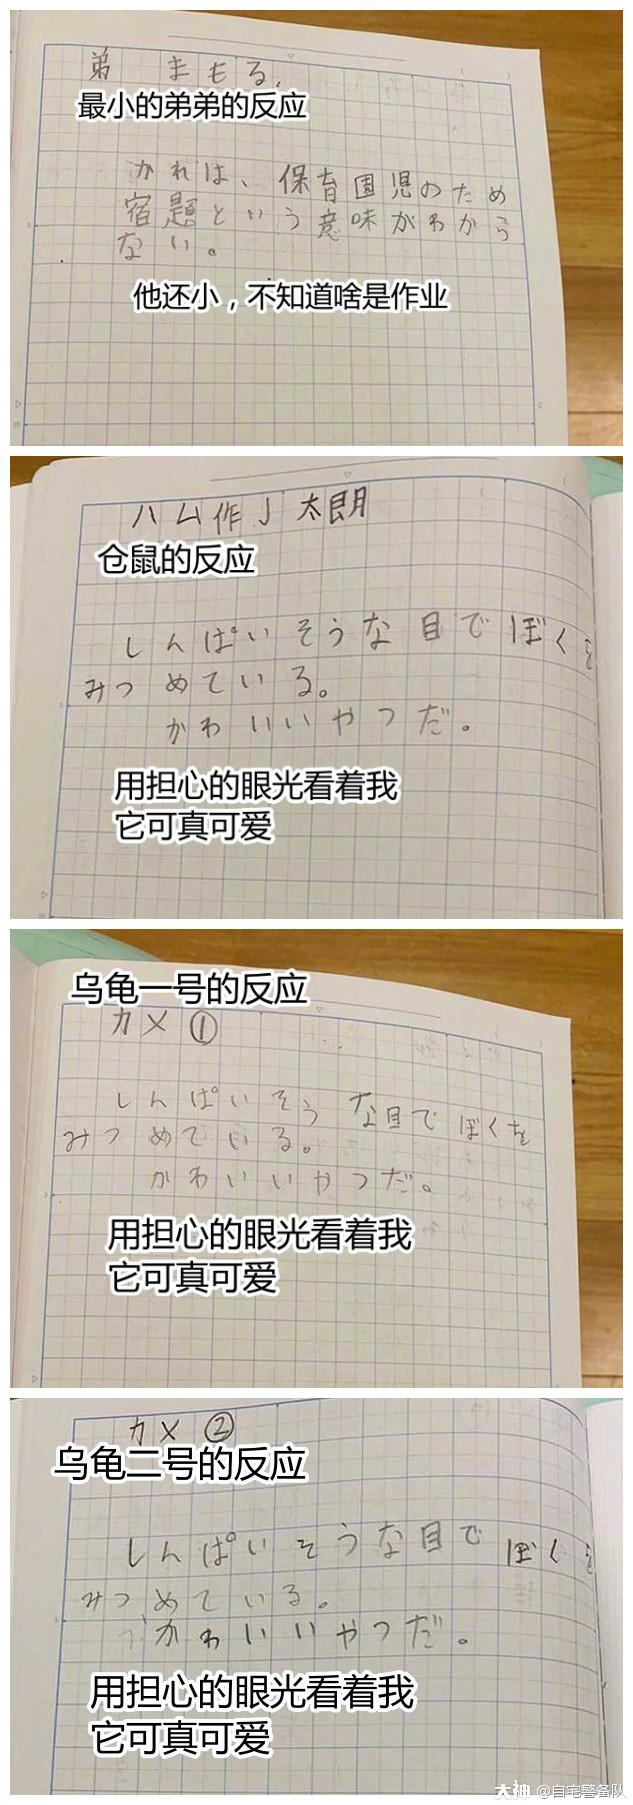 弟 まもる.
最小的弟弟的反应
かれは、保育園児のため
宿題という意味がわから
ない。
他还小，不知道啥是作业
ハム作J 太朗
仓鼠的反应
しんぱいそうな目でぼくを
みつめている。
かわいいやつだ。
用担心的眼光看着我
它可真可爱
乌龟一号的反应
カメ ①
しんぱいそうな目でぼくを
みつめている。
かわいいやつだ。
用担心的眼光看着我
它可真可爱
カメ ②
乌龟二号的反应
しんぱいそうな目でぼくを
みつめている。
かわいいやつだ。
用担心的眼光看着我
它可真可爱
大神 @自宅警备队